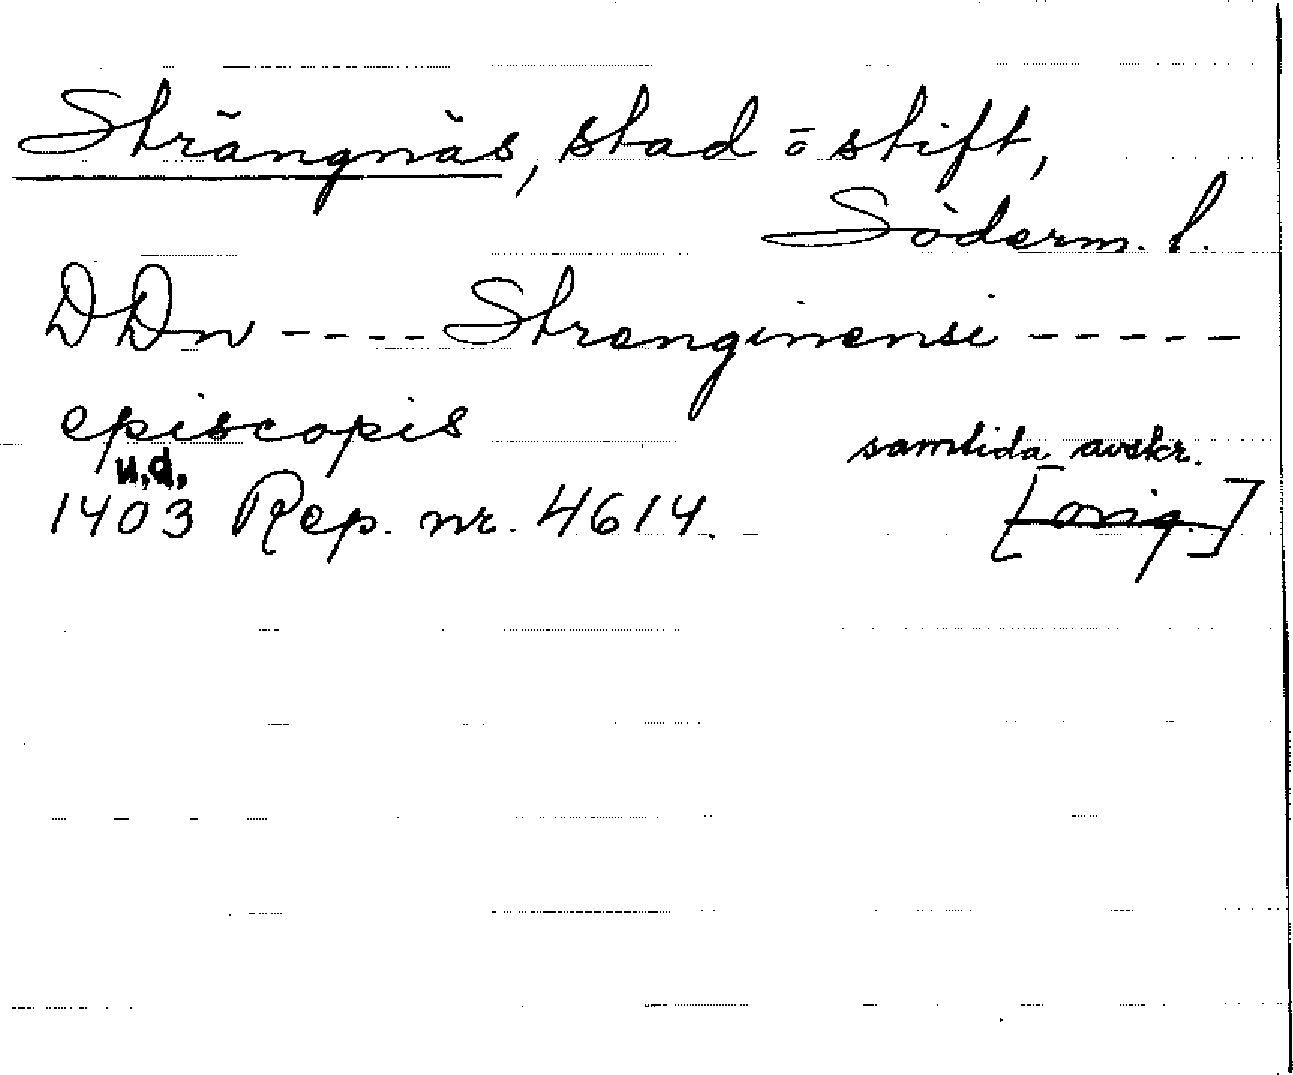 Strängnäs, stad o stift,
Söderm. l.
DDn ---- Strenginensi -----
episcopis
samtida avskr.
u.d.
1403 Rep. nr. 4614. [orig.]